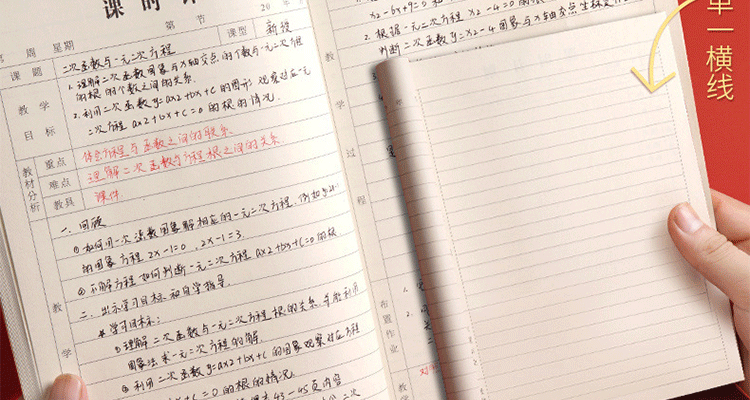 课 时 计
第 节
20 年
星期
课型 新授
课题 二次函数与一元二次方程
教学目标
1.理解二次函数图象与x轴交点的个数与一元二次方程
的根的个数之间的关系.
2.利用二次函数y=ax2+bx+c的图形观察对应一元
二次方程ax2+bx+c=0的根的情况.
教材分析
重点 体会方程与函数之间的联系.
难点 理解二次函数与方程根之间的关系
教具 课件
教学
一.回顾
①如何用一次函数图象解相应的一元一次方程.例如
的图象方程2x-1=0, 2x-1=3.
②不解方程如何判断一元二次方程ax2+bx+c=0的根
二.出示学习目标和自学指导.
学习目标:
①理解二次函数与一元二次方程根的关系,并能利用
图象法求一元二次方程的解
②利用二次函数y=ax2+bx+c的图象观察对应方程
=0的根的情况.
43-45页内容
二次
x2-6x+9=0
2.根据一元二次方程x2-4=0
判断二次函数y=x2-4图象与x轴
过程
布置作业
教
单一横线